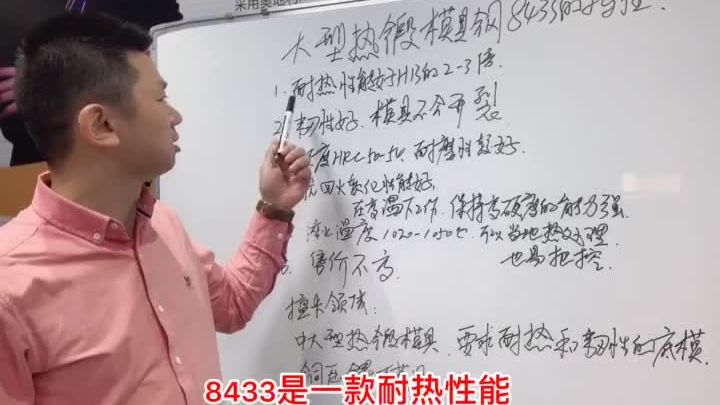 采用奥地利
大型热锻模具钢8433的特性.
1. 耐热性能好于H13的2-3倍.
2. 韧性好. 模具不会开裂
度HRC50-54. 耐磨性较好.
抗回火软化性能好.
在高温下工作. 保持高硬度的能力强.
淬火温度1020-1050℃. 可以当地热处理.
也易把控.
售价不高.
擅长领域:
中大型热锻模具. 要求耐热和韧性的底模.
8433是一款耐热性能